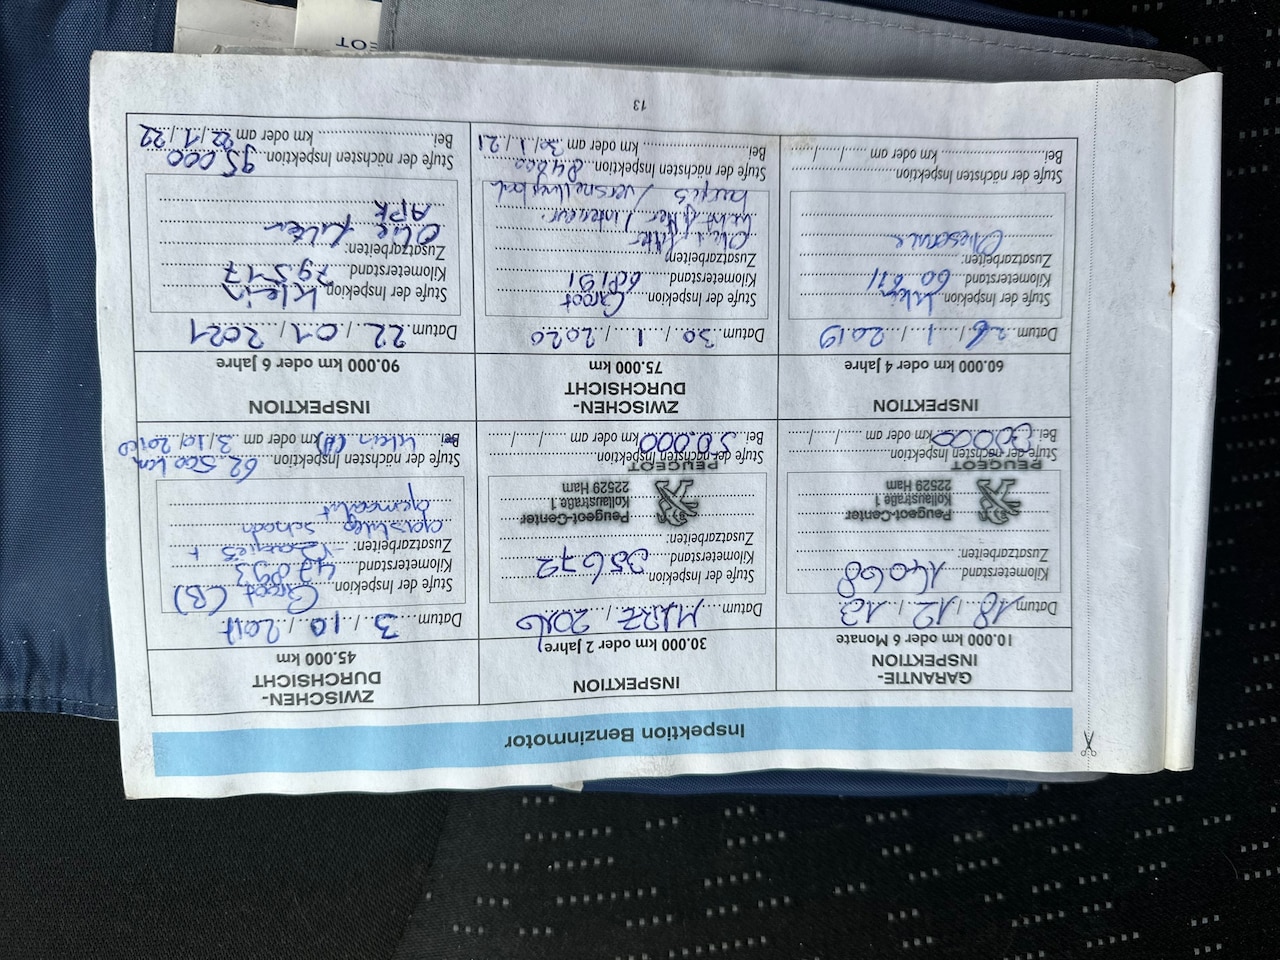 Inspektion Benzinmotor
GARANTIE-
INSPEKTION
10.000 km oder 6 Monate
Datum 18 / 12 / 13
Stufe der Inspektion
Kilometerstand 14068
Zusatzarbeiten:
Peugeot-Center
Kollaustraße 1
22529 Ham
PEUGEOT
Stufe der nächsten Inspektion
30000
Bei km oder am / /
INSPEKTION
30.000 km oder 2 Jahre
Datum MÄRZ 2016
Stufe der Inspektion
Kilometerstand 35672
Zusatzarbeiten:
Peugeot-Center
Kollaustraße 1
22529 Ham
PEUGEOT
Stufe der nächsten Inspektion
50.000
Bei km oder am / /
ZWISCHEN-
DURCHSICHT
45.000 km
Datum 3 / 10 / 2017
Stufe der Inspektion Groot (B)
Kilometerstand 47893
Zusatzarbeiten:
schoon
gemaakt
Stufe der nächsten Inspektion 62.500 km
Bei klein (A) km oder am 3/10/2018
INSPEKTION
60.000 km oder 4 Jahre
Datum 26 / 1 / 2019
Stufe der Inspektion
Kilometerstand 60 811
Zusatzarbeiten:
Stufe der nächsten Inspektion
Bei km oder am / /
ZWISCHEN-
DURCHSICHT
75.000 km
Datum 30 / 1 / 2020
Stufe der Inspektion Groot
Kilometerstand 68191
Zusatzarbeiten
Olie filter
lucht filter / interieur.
bougies / versnellingsbak
Stufe der nächsten Inspektion 84000
Bei km oder am 30 / 1 / 21
INSPEKTION
90.000 km oder 6 Jahre
Datum 22 / 01 / 2021
Stufe der Inspektion Klein
Kilometerstand 79.517
Zusatzarbeiten:
Olie filter
APK
Stufe der nächsten Inspektion 95.000
Bei km oder am 22 / 1 / 22
13